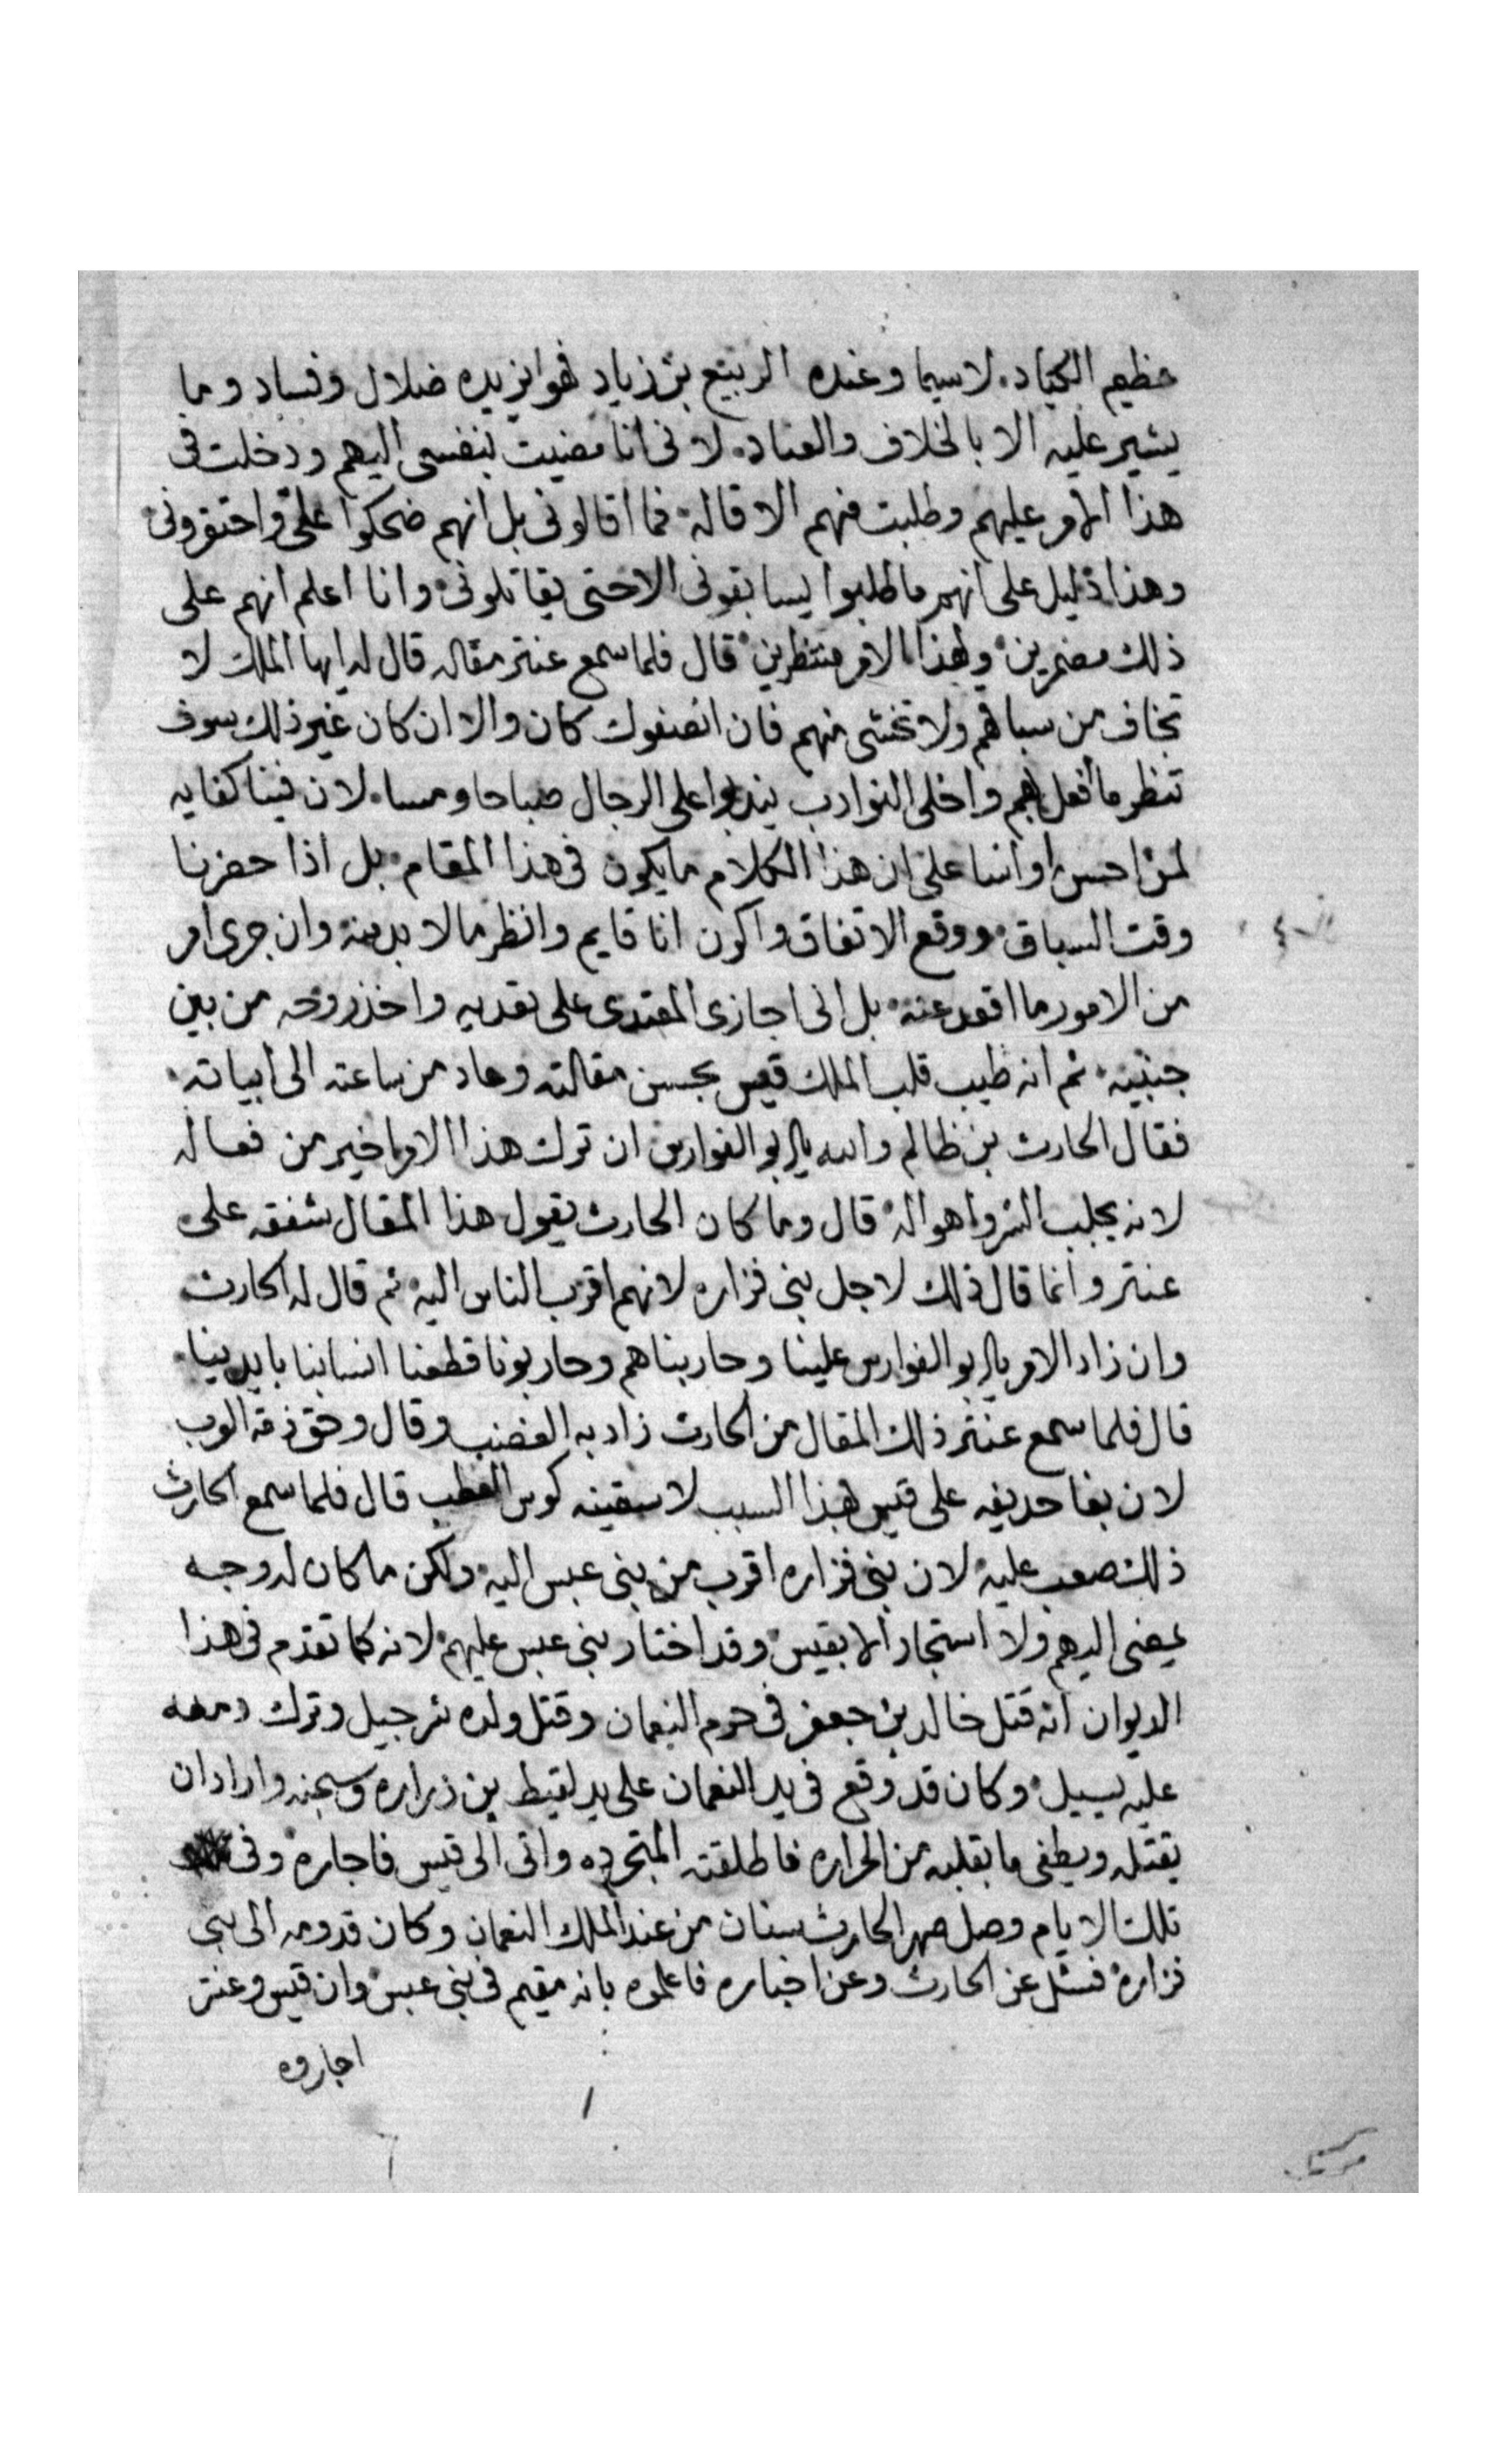 عظيم الكياد، لاسيما وعنده الربيع بن زياد فهو ايزيده ضلال وفساد وما
يشير عليه الا بالخلاف والعناد، لانى انا مضيت بنفسى اليهم ودخلت فى
هذا الامر عليهم وطلبت منهم الاقاله فما اقالونى بل انهم ضحكوا على واحتقرونى
وهذا دليل على انهم ما طلبوا يسابقونى الا حتى يقاتلونى وانا اعلم انهم على
ذلك مضمرين ولهذا الامر منتظرين قال فلما سمع عنتر مقاله قال له ايها الملك لا
تخاف من سباقهم ولا تخشى منهم فان انصفوك كان والا ان كان غير ذلك سوف
تنظر ما افعل بهم واخلى النوادب يندبوا على الرجال صباحا ومسا، لان فينا كفايه
لمن احسن او اسا على ان هذا الكلام ما يكون فى هذا المقام بل اذا حضرنا
وقت السباق ووقع الاتفاق واكون انا قايم وانظر ما لا بد منه وان جرى امر
من الامور ما اقعد عنه بل انى اجازى المعتدى على تعديه واخذ روحه من بين
جنبيه، ثم انه طيب قلب الملك قيس بحسن مقالته وعاد من ساعته الى ابياته،
فقال الحارث بن ظالم والله يا ابو الفوارس ان ترك هذا الامر اخير من فعاله
لانه يجلب الشر واهواله قال وما كان الحارث يقول هذا المقال شفقه على
عنتر وانما قال ذلك لاجل بنى فزاره لانهم اقرب الناس اليه ثم قال له الحارث
وان زاد الامر يا ابو الفوارس علينا وحاربناهم وحاربونا قطعنا انسابنا بايدينا،
قال فلما سمع عنتر ذلك المقال من الحارث زاد به الغضب وقال وحق ذمة العرب
لان بغا حذيفه على قيس بهذا السبب لاسقينه كوس العطب قال فلما سمع الحارث
ذلك صعب عليه لان بنى فزاره اقرب من بنى عبس اليه ولكن ما كان له وجه
يمضى اليهم ولا استجار الا بقيس وقد اختار بنى عبس عليهم لانه كما تقدم فى هذا
الديوان انه قتل خالد بن جعفر فى حرم النعمان وقتل ولده شرجيل وترك دمعه
عليه يسيل، وكان قد وقع فى يد النعمان على يد لقيط بن زراره وسجنه واراد ان
يقتله ويطفى ما بقلبه من الحراره فاطلقته المتجرده واتى الى قيس فاجاره وفى
تلك الايام وصل صهر الحارث سنان من عند الملك النعمان وكان قدومه الى بنى
فزاره فسئل عن الحارث وعن اخباره فاعلموه بانه مقيم فى بنى عبس وان قيس وعنتر
اجاروه